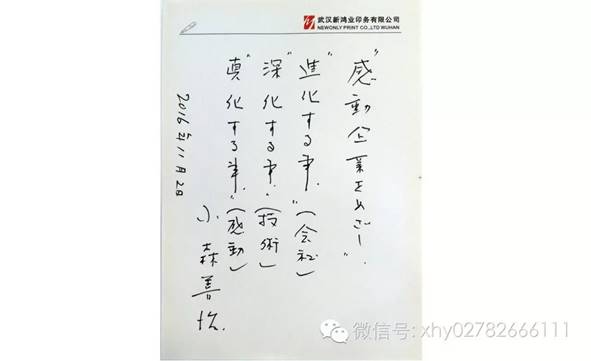 武汉新鸿业印务有限公司
NEWONLY PRINT CO.,LTD WUHAN
"感動企業をめざし"
"進化する事."(会社)
"深化する事."(技術)
"真化する事."(感動)
小森善治.
2016年11月2日
微信号: xhy02782666111